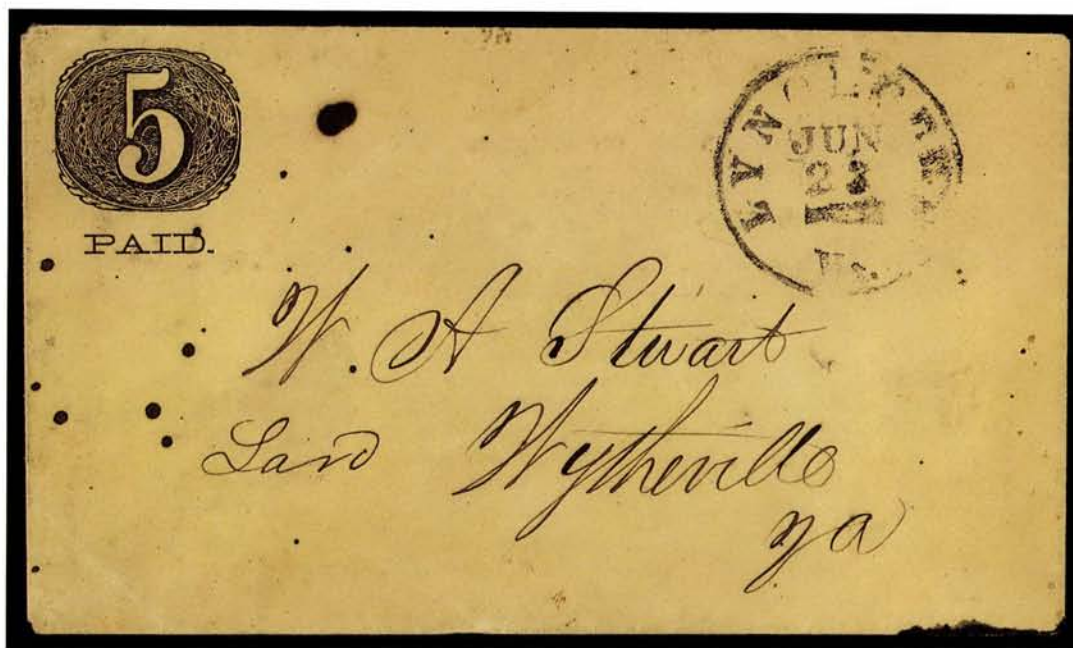 5
PAID.
LYNCHBURG
JUN
Va.
W. A Stuart
Wytheville
Va